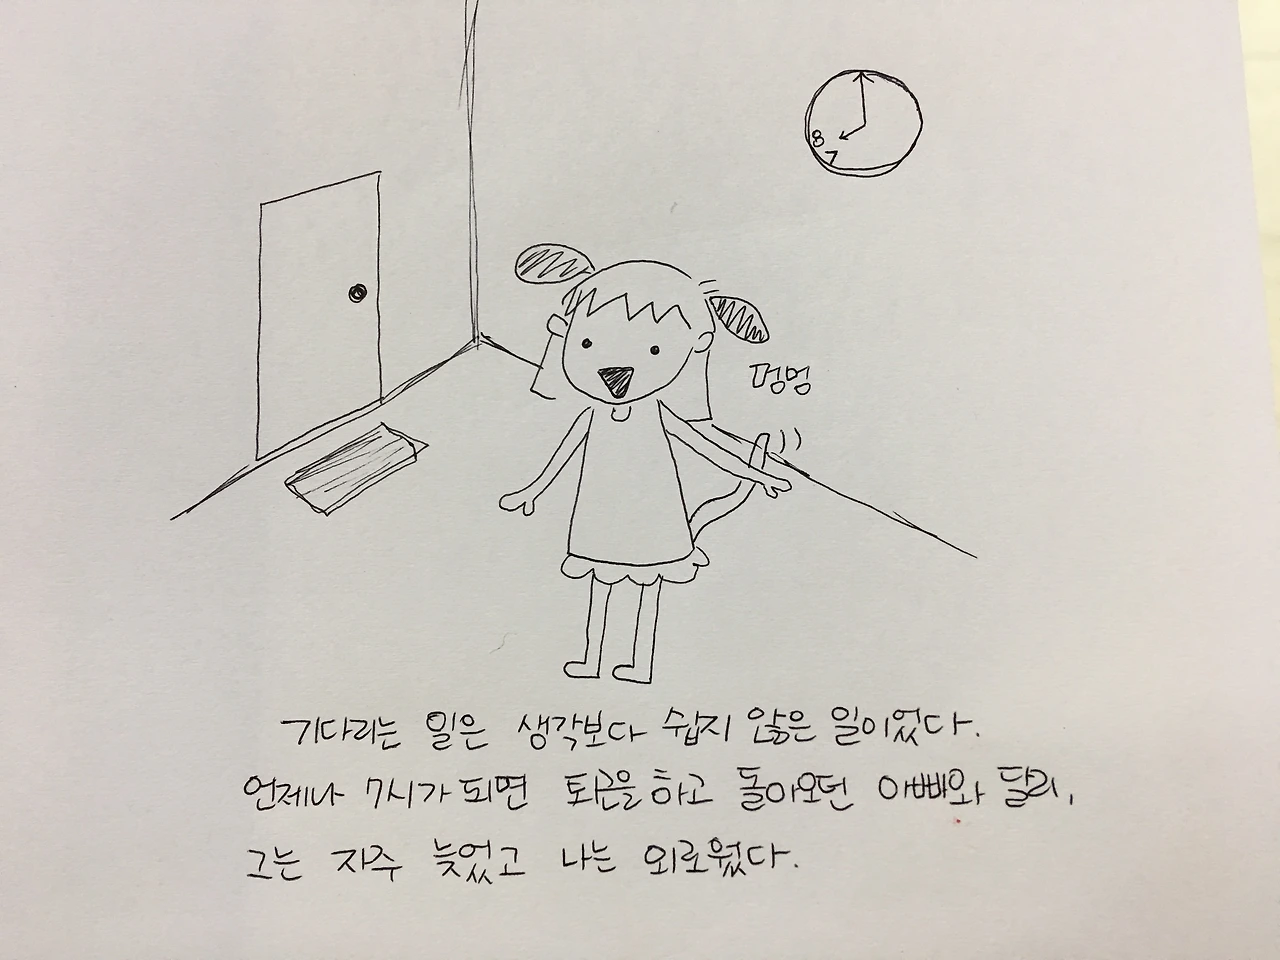 8
7
멍멍
기다리는 일은 생각보다 쉽지 않은 일이었다.
언제나 7시가 되면 퇴근을 하고 돌아오던 아빠와 달리,
그는 자주 늦었고 나는 외로웠다.